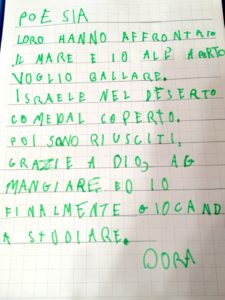 POESIA
LORO HANNO AFFRONTATO
IL MARE E IO ALL'APERTO
VOGLIO BALLARE.
ISRAELE NEL DESERTO
COME DAL COPERTO.
POI SONO RIUSCITI,
GRAZIE A DIO, A
MANGIARE ED IO
FINALMENTE GIOCAND
A STUDIARE.
DORA